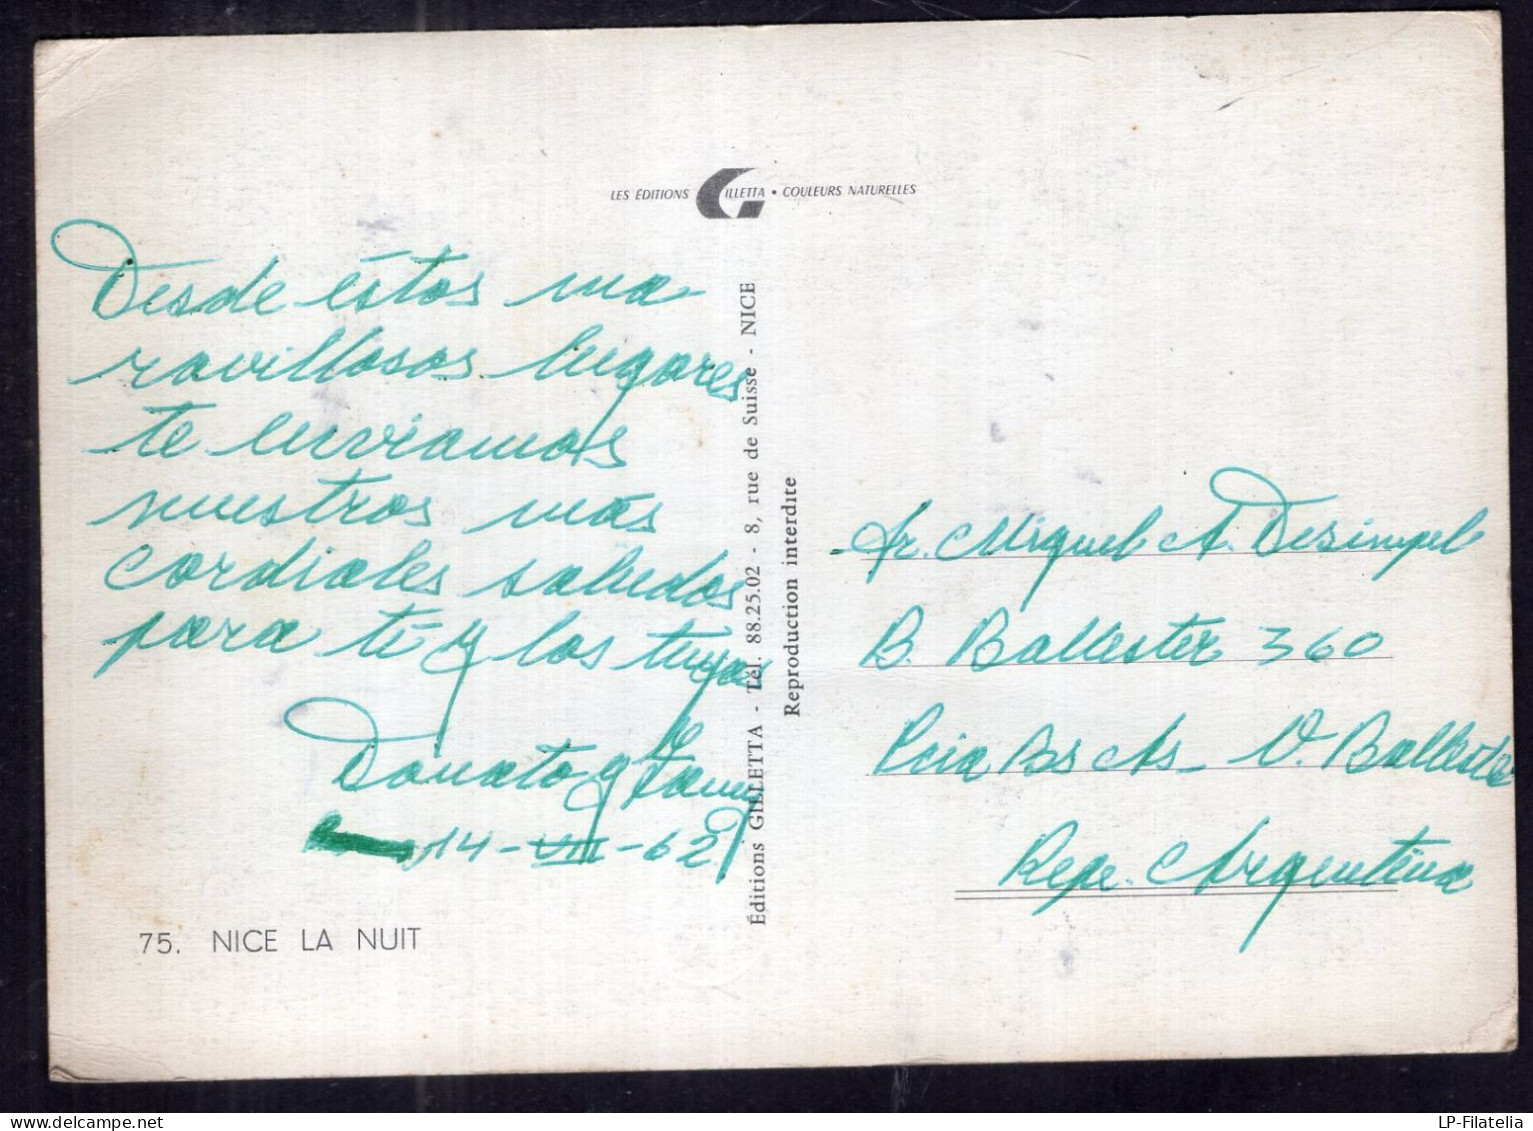 LES ÉDITIONS GILLETTA • COULEURS NATURELLES
Desde éstos ma-
ravillosos lugares
te enviamos
nuestros más
cordiales saludos
para tí y los tuyos
Donato y
14-VII-62
75. NICE LA NUIT
Éditions GILLETTA - Tél. 88.25.02 - 8, rue de Suisse - NICE
Reproduction interdite
Sr. Miguel A. Desimpel
B. Ballester 360
Pcia Bs As_ V. Ballester
Rep. Argentina
LP-Filatelia